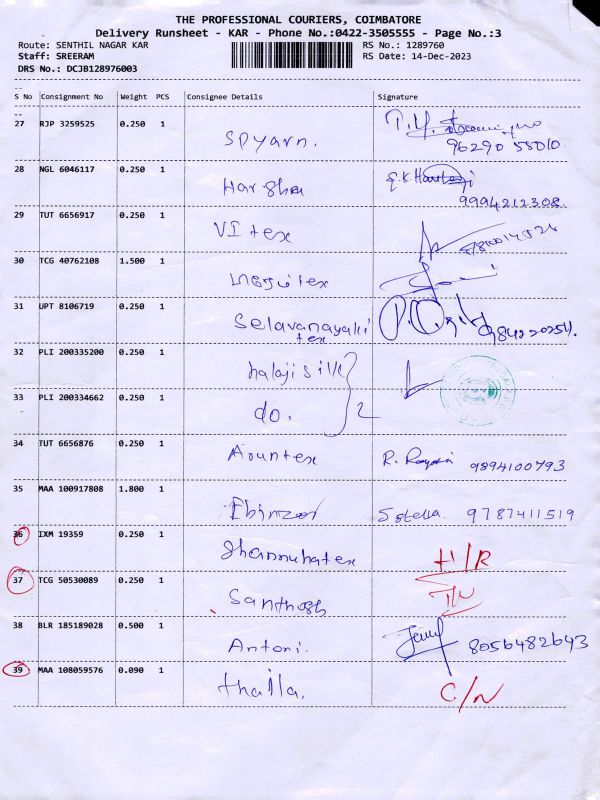 THE PROFESSIONAL COURIERS, COIMBATORE
Delivery Runsheet - KAR - Phone No.:0422-3505555 - Page No.:3
Route: SENTHIL NAGAR KAR RS No.: 1289760
Staff: SREERAM RS Date: 14-Dec-2023
DRS No.: DCJB128976003
--
S No Consignment No Weight PCS Consignee Details Signature
--
27 RJP 3259525 0.250 1
Spyarn.
96290 55010
28 NGL 6046117 0.250 1
Harsha
9994212308.
29 TUT 6656917 0.250 1
VI tex
30 TCG 40762108 1.500 1
31 UPT 8106719 0.250 1
Selavanayaki
tex
32 PLI 200335200 0.250 1
balaji silk
33 PLI 200334662 0.250 1
do. 2
34 TUT 6656876 0.250 1
Arun tex R. 9894100793
35 MAA 100917808 1.800 1
S stella. 9787411519
36 IXM 19359 0.250 1
H/R
37 TCG 50530089 0.250 1
Santhosh
38 BLR 185189028 0.500 1
Antoni. 8056482643
39 MAA 108059576 0.090 1
thalla. C/N